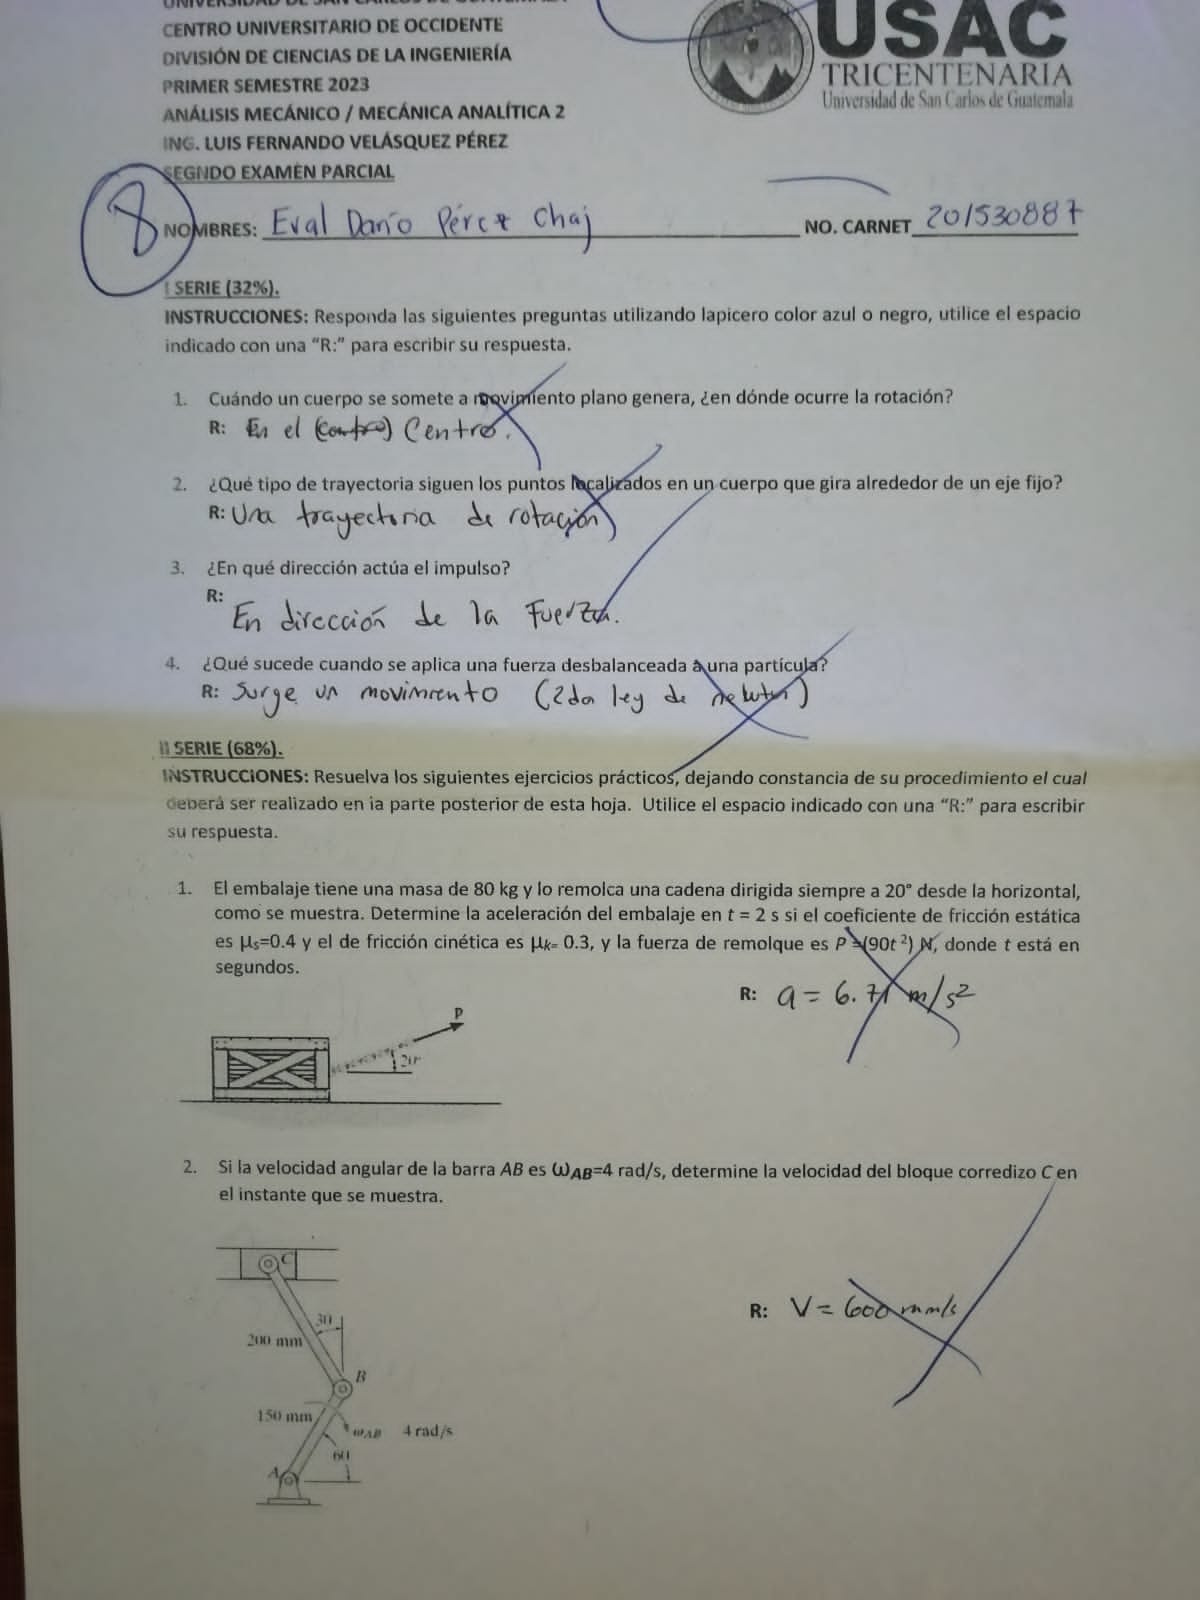 CENTRO UNIVERSITARIO DE OCCIDENTE
DIVISIÓN DE CIENCIAS DE LA INGENIERÍA
PRIMER SEMESTRE 2023
ANÁLISIS MECÁNICO / MECÁNICA ANALÍTICA 2
ING. LUIS FERNANDO VELÁSQUEZ PÉREZ
SEGNDO EXAMEN PARCIAL
USAC
TRICENTENARIA
Universidad de San Carlos de Guatemala
8
NOMBRES: Eval Darío Pérez Chaj NO. CARNET 201530887
I SERIE (32%).
INSTRUCCIONES: Responda las siguientes preguntas utilizando lapicero color azul o negro, utilice el espacio
indicado con una “R:” para escribir su respuesta.
1. Cuándo un cuerpo se somete a movimiento plano genera, ¿en dónde ocurre la rotación?
R: En el Centro.
2. ¿Qué tipo de trayectoria siguen los puntos localizados en un cuerpo que gira alrededor de un eje fijo?
R: Una trayectoria de rotación
3. ¿En qué dirección actúa el impulso?
R:
En dirección de la Fuerza.
4. ¿Qué sucede cuando se aplica una fuerza desbalanceada a una partícula?
R: Surge un movimiento (2da ley de newton)
II SERIE (68%).
INSTRUCCIONES: Resuelva los siguientes ejercicios prácticos, dejando constancia de su procedimiento el cual
deberá ser realizado en la parte posterior de esta hoja. Utilice el espacio indicado con una “R:” para escribir
su respuesta.
1. El embalaje tiene una masa de 80 kg y lo remolca una cadena dirigida siempre a 20° desde la horizontal,
como se muestra. Determine la aceleración del embalaje en t = 2 s si el coeficiente de fricción estática
es μs=0.4 y el de fricción cinética es μk= 0.3, y la fuerza de remolque es P =(90t ²) N, donde t está en
segundos.
R: a = 6.71 m/s²
P
20°
2. Si la velocidad angular de la barra AB es ωAB=4 rad/s, determine la velocidad del bloque corredizo C en
el instante que se muestra.
C
30
200 mm
R: V = 600 mm/s
B
150 mm
ωAB 4 rad/s
60
A